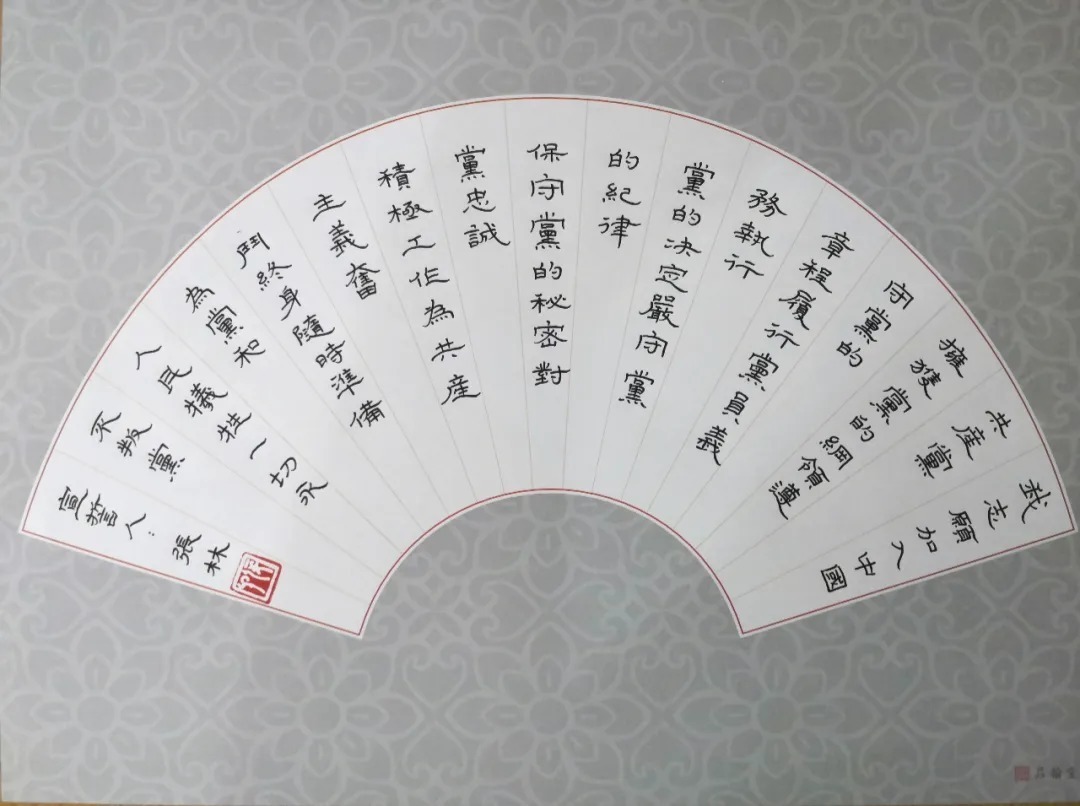 我志願加入中國
共産黨
擁獲黨的綱領遵
守黨的
章程履行黨員義
務執行
黨的决定嚴守黨
的紀律
保守黨的秘密對
黨忠誠
積極工作為共産
主義奮
鬥終身隨時準備
為黨和
人民犧牲一切永
不叛黨
宣誓人：張林